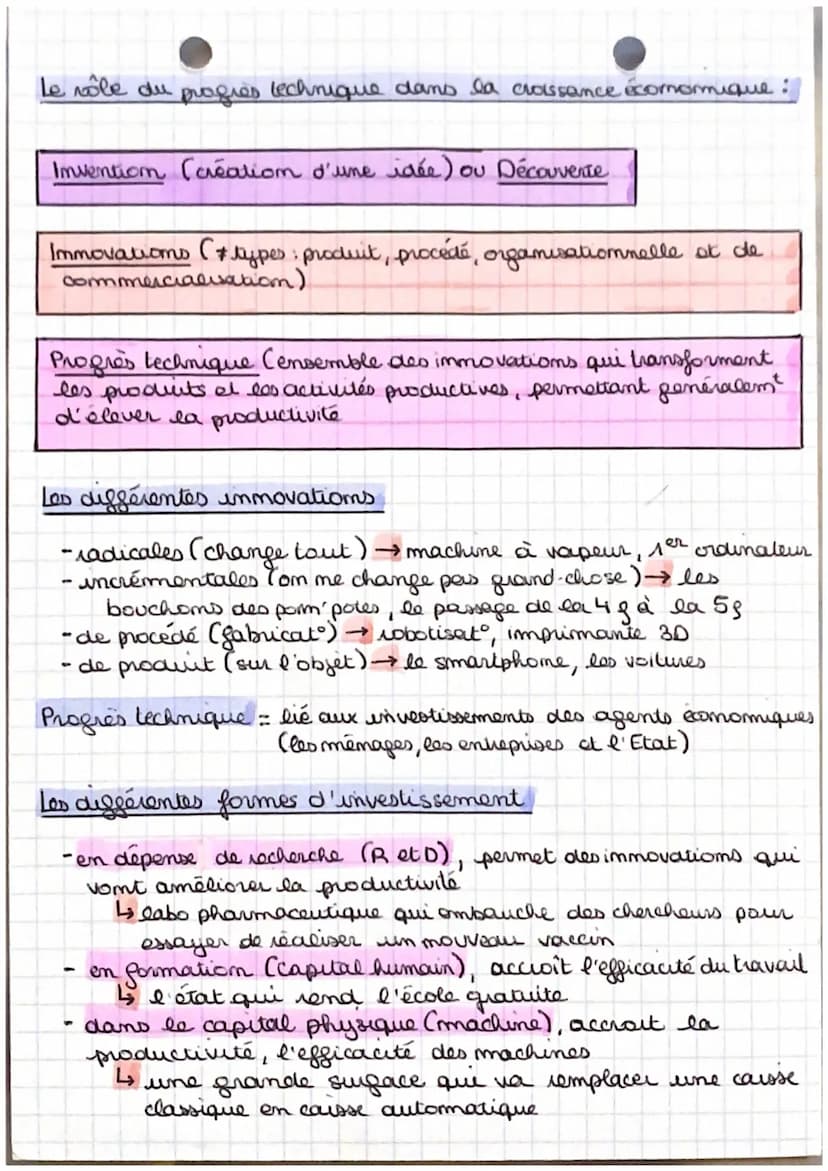 Le rôle du progrès technique dans la croissance économique :
Invention (création d'une idée) ou Découverte
Innovations (≠ types : produit, procédé, organisationnelle et de
commercialisation)
Progrès technique (ensemble des innovations qui transforment
les produits et les activités productives, permettant généralemᵗ
d'élever la productivité
Les différentes innovations
- radicales (change tout) → machine à vapeur, 1er ordinateur
- incrémentales (on ne change pas grand-chose) → les
bouchons des pom'potes, le passage de la 4g à la 5g
- de procédé (fabricat°) → robotisat°, imprimante 3D
- de produit (sur l'objet) → le smartphone, les voitures
Progrès technique = lié aux investissements des agents économiques
(les ménages, les entreprises et l'Etat)
Les différentes formes d'investissement
- en dépense de recherche (R et D), permet des innovations qui
vont améliorer la productivité
↳ labo pharmaceutique qui embauche des chercheurs pour
essayer de réaliser un nouveau vaccin
- en formation (capital humain), accroît l'efficacité du travail
↳ l'état qui rend l'école gratuite
- dans le capital physique (machine), accroit la
productivité, l'efficacité des machines
↳ une grande surface qui va remplacer une caisse
classique en caisse automatique